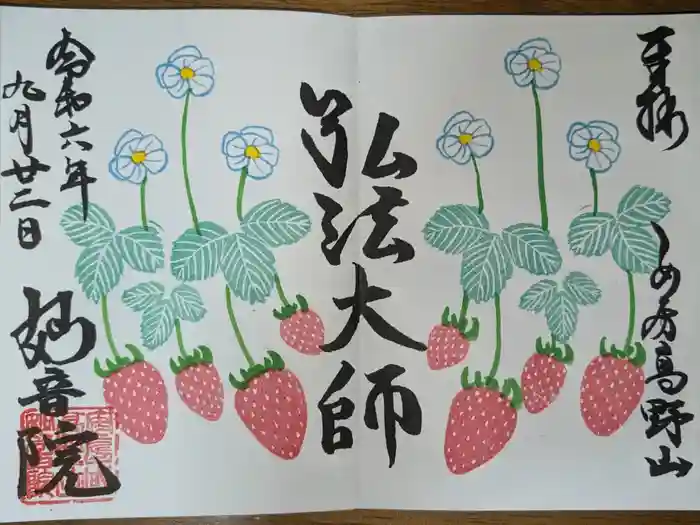 奉拝
安房高野山
弘法大師
令和六年
九月廿二日
妙音院